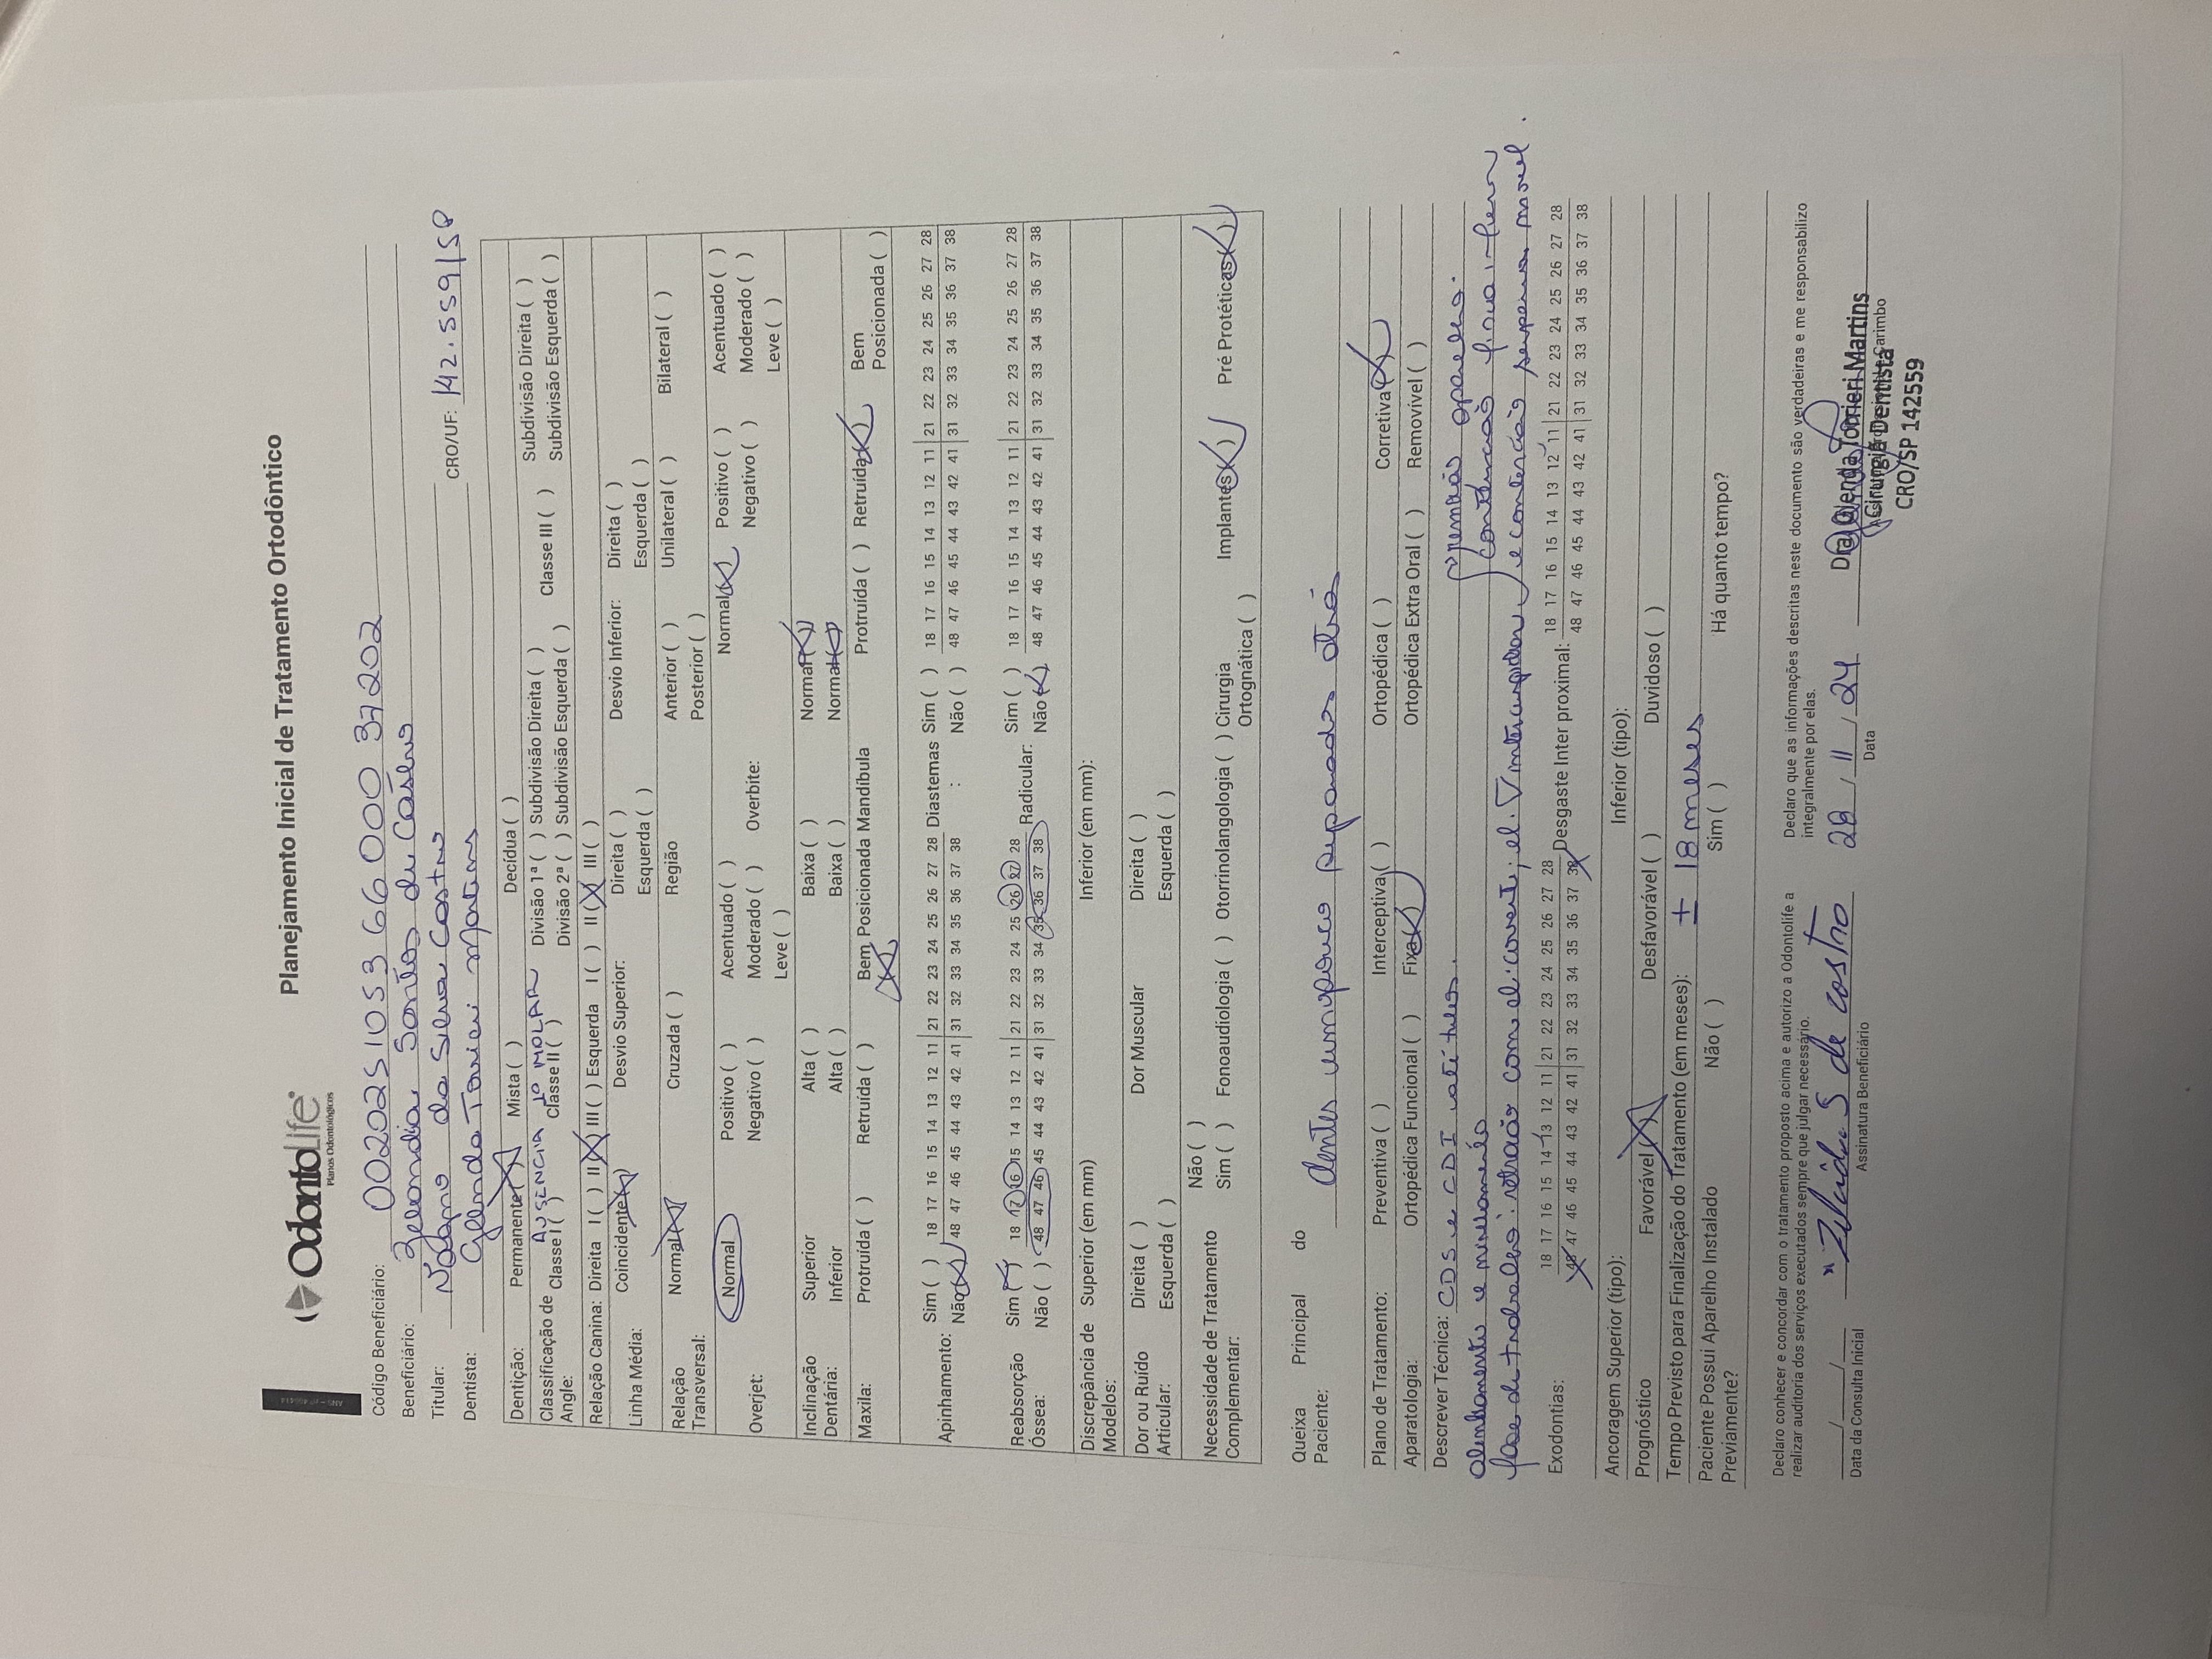 OdontoLife
Planos Odontológicos
Planejamento Inicial de Tratamento Ortodôntico
Código Beneficiário: 002025 1053 66 000 37 202
Beneficiário: Santos de Castro
Titular: da Silva Castro CRO/UF: 142.559/SP
Dentista: Glenda Tonieri Martins
Dentição: Permanente (X) Mista ( ) Decídua ( )
Classificação de Angle: AUSENCIA 1º MOLAR
Classe I ( ) Classe II ( ) Divisão 1ª ( ) Subdivisão Direita ( ) Classe III ( ) Subdivisão Direita ( )
Divisão 2ª ( ) Subdivisão Esquerda ( ) Subdivisão Esquerda ( )
Relação Canina: Direita I ( ) II (X) III ( ) Esquerda I ( ) II (X) III ( )
Linha Média: Coincidente (X) Desvio Superior: Direita ( ) Desvio Inferior: Direita ( )
Esquerda ( ) Esquerda ( )
Relação Transversal: Normal (X) Cruzada ( ) Região Anterior ( ) Unilateral ( ) Bilateral ( )
Posterior ( )
Overjet: Normal Positivo ( ) Acentuado ( ) Overbite: Normal (X) Positivo ( ) Acentuado ( )
Negativo ( ) Moderado ( ) Negativo ( ) Moderado ( )
Leve ( ) Leve ( )
Inclinação Dentária: Superior Alta ( ) Baixa ( ) Normal (X)
Inferior Alta ( ) Baixa ( ) Normal (X)
Maxila: Protruída ( ) Retruída ( ) Bem Posicionada (X) Mandíbula Protruída ( ) Retruída (X) Bem Posicionada ( )
Apinhamento: Sim ( ) 18 17 16 15 14 13 12 11 21 22 23 24 25 26 27 28 Diastemas Sim ( ) 18 17 16 15 14 13 12 11 21 22 23 24 25 26 27 28
Não (X) 48 47 46 45 44 43 42 41 31 32 33 34 35 36 37 38 : Não ( ) 48 47 46 45 44 43 42 41 31 32 33 34 35 36 37 38
Reabsorção Óssea: Sim (X) 18 17 16 15 14 13 12 11 21 22 23 24 25 26 27 28 Radicular: Sim ( ) 18 17 16 15 14 13 12 11 21 22 23 24 25 26 27 28
Não ( ) 48 47 46 45 44 43 42 41 31 32 33 34 35 36 37 38 Não (X) 48 47 46 45 44 43 42 41 31 32 33 34 35 36 37 38
Discrepância de Modelos: Superior (em mm) Inferior (em mm):
Dor ou Ruído Articular: Direita ( ) Dor Muscular Direita ( )
Esquerda ( ) Esquerda ( )
Necessidade de Tratamento Complementar: Não ( )
Sim ( ) Fonoaudiologia ( ) Otorrinolangologia ( ) Cirurgia Ortognática ( ) Implantes (X) Pré Protéticas (X)
Queixa Principal do Paciente: dentes um pouco separados atrás
Plano de Tratamento: Preventiva ( ) Interceptiva ( ) Ortopédica ( ) Corretiva (X)
Aparatologia: Ortopédica Funcional ( ) Fixa (X) Ortopédica Extra Oral ( ) Removível ( )
Descrever Técnica: CDS e CDI até aparelho.
alinhamento e nivelamento contenção fixa inferior
fase de trabalho: retração com el. corrent; el. intercuspidar e contenção superior móvel.
Exodontias: 18 17 16 15 14 13 12 11 21 22 23 24 25 26 27 28 Desgaste Inter proximal: 18 17 16 15 14 13 12 11 21 22 23 24 25 26 27 28
48 47 46 45 44 43 42 41 31 32 33 34 35 36 37 38 48 47 46 45 44 43 42 41 31 32 33 34 35 36 37 38
Ancoragem Superior (tipo): Inferior (tipo):
Prognóstico Favorável (X) Desfavorável ( ) Duvidoso ( )
Tempo Previsto para Finalização do Tratamento (em meses): ± 18 meses
Paciente Possui Aparelho Instalado Previamente? Não ( ) Sim ( ) Há quanto tempo?
Declaro conhecer e concordar com o tratamento proposto acima e autorizo a Odontolife a realizar auditoria dos serviços executados sempre que julgar necessário.
Declaro que as informações descritas neste documento são verdadeiras e me responsabilizo integralmente por elas.
__/__/__ Data da Consulta Inicial
S de castro
Assinatura Beneficiário
28/11/24
Data
Dra Glenda Tonieri Martins
Cirurgiã Dentista
CRO/SP 142559
Carimbo